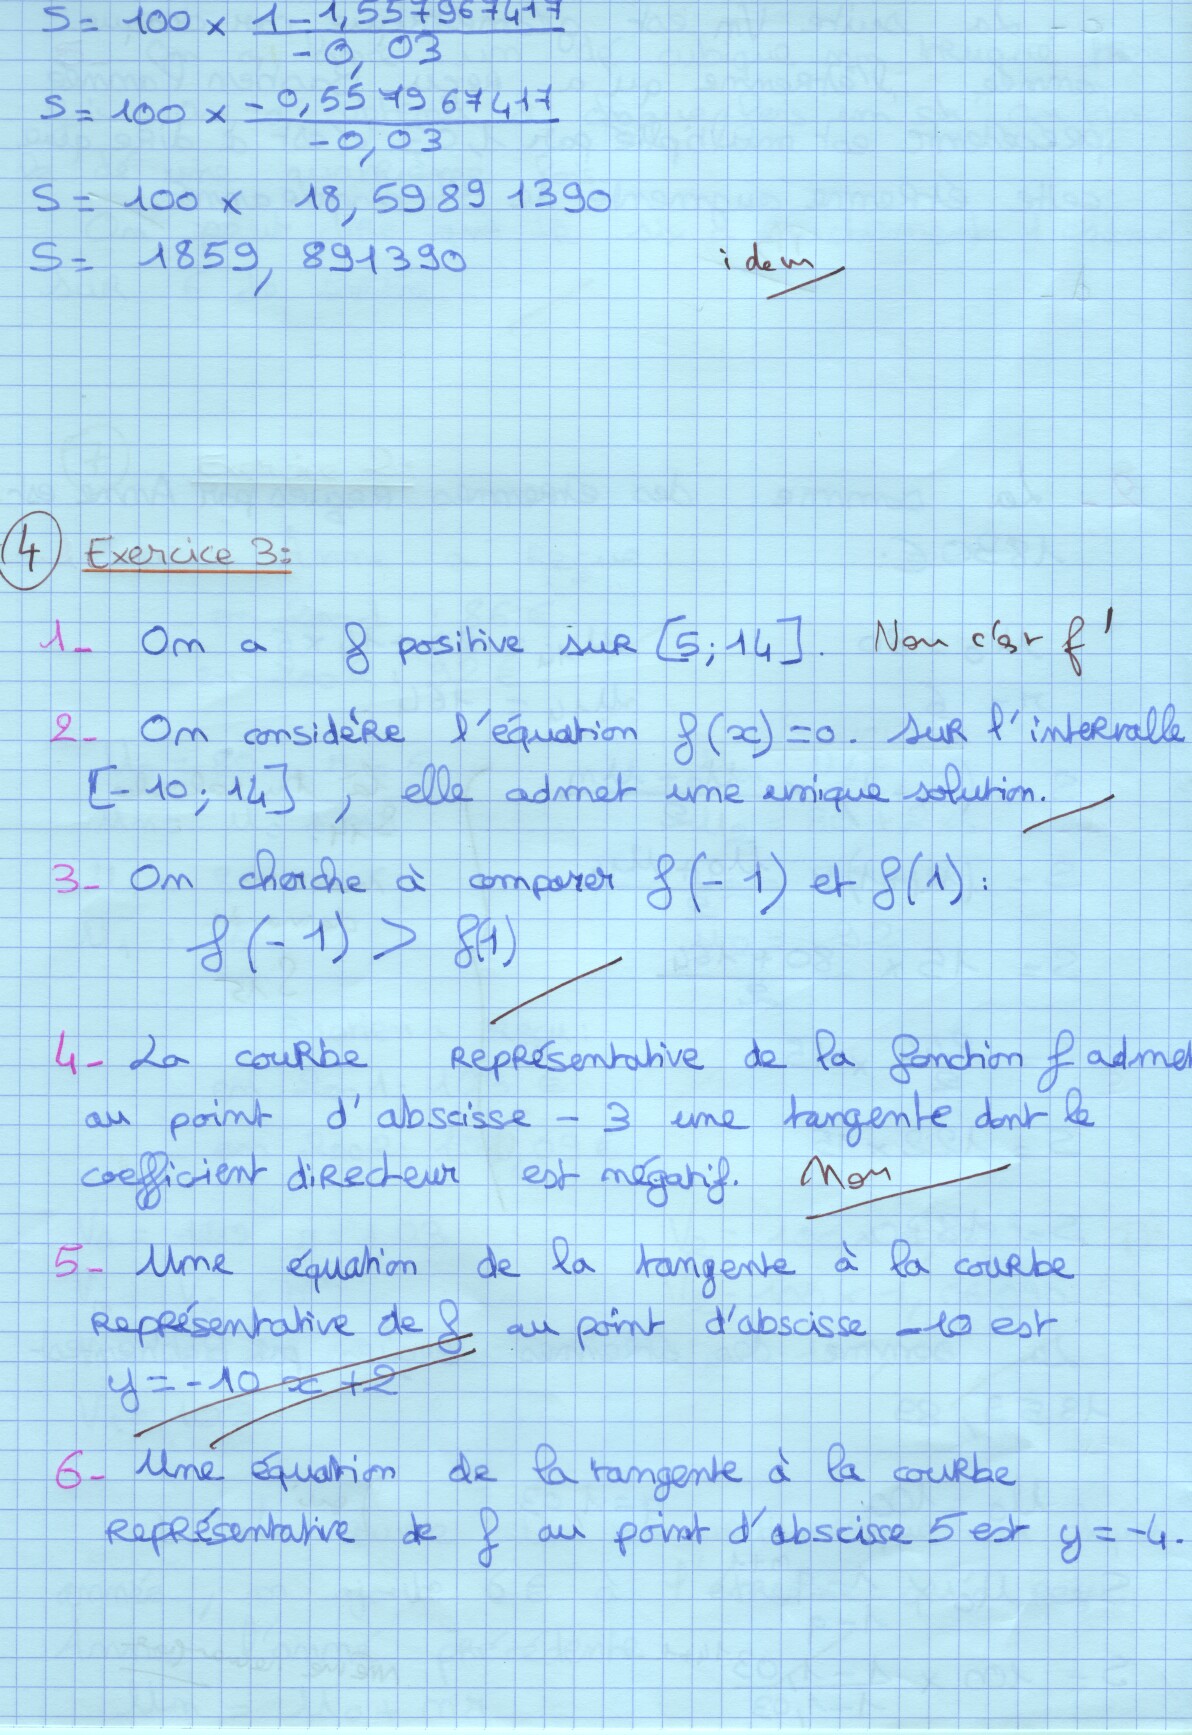 S = 100 × 1 - 1,557967417 / -0,03
S = 100 × -0,557967417 / -0,03
S = 100 × 18,59891390
S = 1859,891390 idem
4 Exercice 3:
1- On a f positive sur [5;14]. Non c'est f'
2- On considère l'équation f(x)=0. sur l'intervalle
[-10;14], elle admet une unique solution.
3- On cherche à comparer f(-1) et f(1):
f(-1) > f(1)
4- La courbe représentative de la fonction f admet
au point d'abscisse -3 une tangente dont le
coefficient directeur est négatif. Non
5- Une équation de la tangente à la courbe
représentative de f au point d'abscisse -10 est
y = -10x+2
6- Une équation de la tangente à la courbe
représentative de f au point d'abscisse 5 est y = -4.